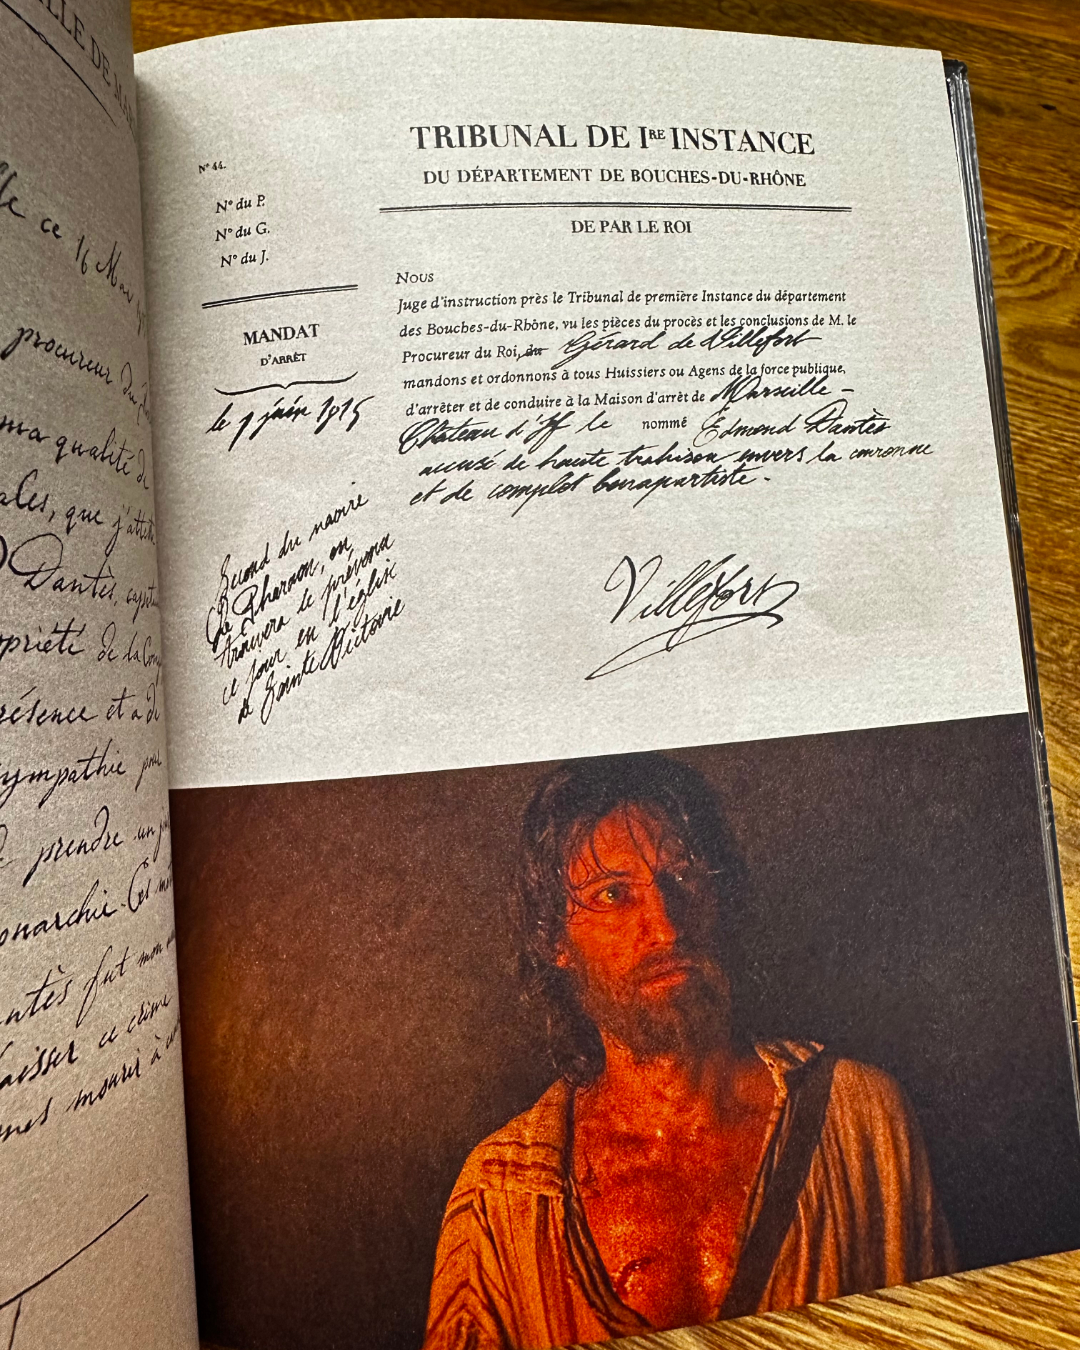 LLE DE MAR
ce 16 Mai
procureur du
ma qualité de
ales, que j'atteste
Dantès, capitaine
propriété de la Comp
résence et a d
sympathie pour
prendre un
onarchie. Ces
antès fut mon
laisser ce crime
mes mourir à
TRIBUNAL DE Iʀᴇ INSTANCE
DU DÉPARTEMENT DE BOUCHES-DU-RHÔNE
DE PAR LE ROI
N° 44.
N° du P.
N° du G.
N° du J.
MANDAT
D'ARRÊT
le 9 juin 1815
Second du navire
Le Pharaon, on
trouvera le prévenu
ce jour en l'église
de Sainte Victoire
Nous
Juge d'instruction près le Tribunal de première Instance du département
des Bouches-du-Rhône, vu les pièces du procès et les conclusions de M. le
Procureur du Roi, du Gérard de Villefort
mandons et ordonnons à tous Huissiers ou Agens de la force publique,
d'arrêter et de conduire à la Maison d'arrêt de Marseille –
Château d'If le nommé Edmond Dantès
accusé de haute trahison envers la couronne
et de complot bonapartiste.
Villefort